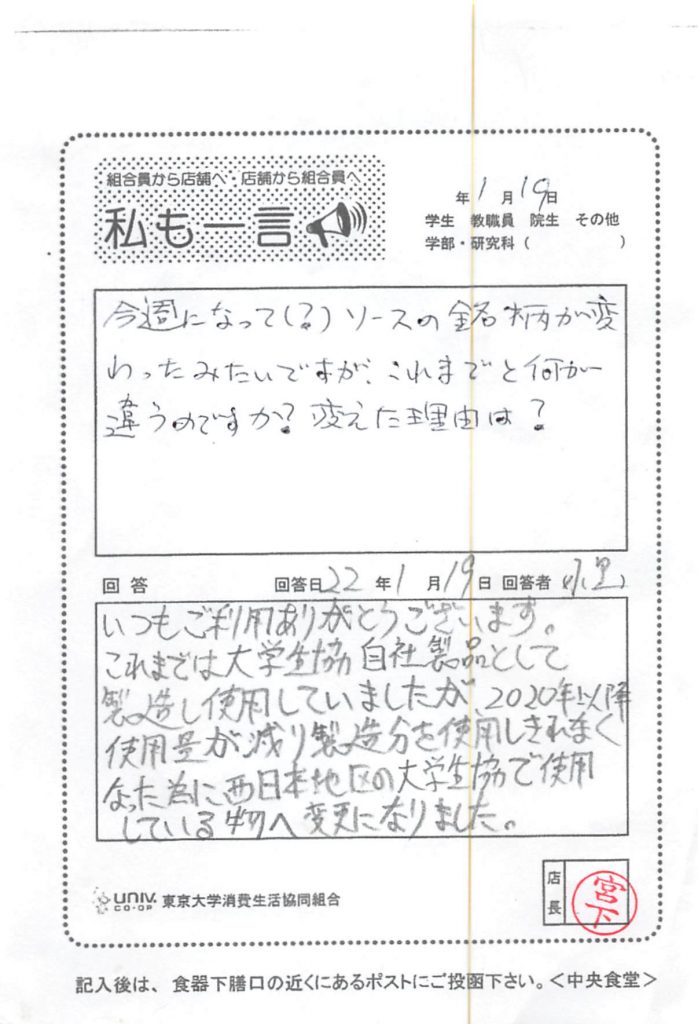 組合員から店舗へ・店舗から組合員へ
私も一言
年1月19日
学生 教職員 院生 その他
学部・研究科( )
今週になって(?)ソースの銘柄が変
わったみたいですが、これまでと何が
違うのですか?変えた理由は?
回答 回答日22年1月19日 回答者
いつもご利用ありがとうございます。
これまでは大学生協自社製品として
製造し使用していましたが、2020年以降
使用量が減り製造分を使用しきれなく
なった為に西日本地区の大学生協で使用
している物へ変更になりました。
UNIV. CO-OP 東京大学消費生活協同組合
店長 宮下
記入後は、食器下膳口の近くにあるポストにご投函下さい。<中央食堂>